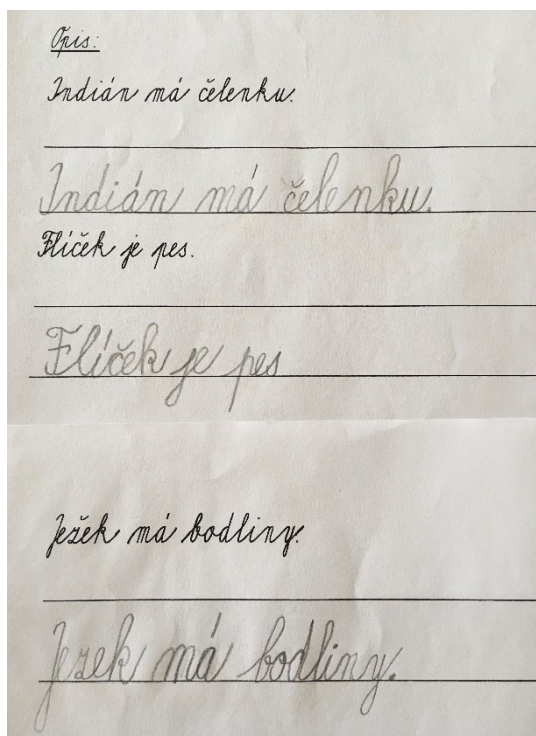 Opis:
Indián má čelenku.
Indián má čelenku.
Flíček je pes.
Flíček je pes
Ježek má bodliny.
Jezek má bodliny.